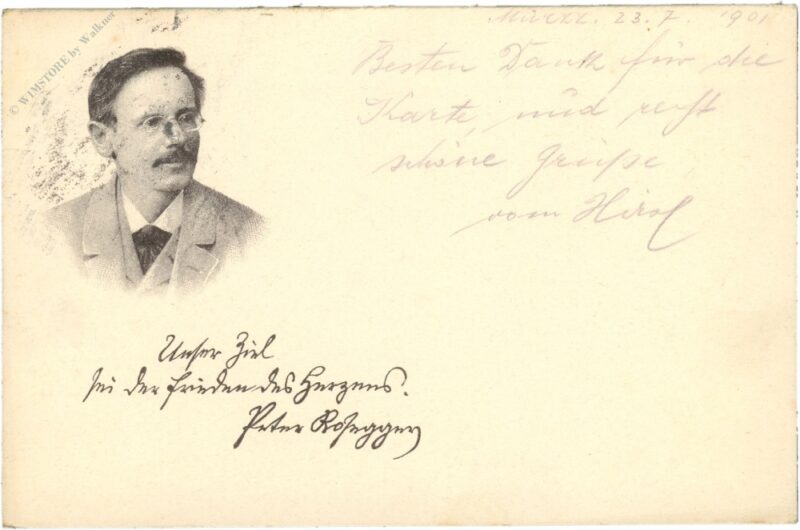 © WIMSTORE by Walkner
Mürzz. 23. 7. 1901
Besten Dank für die
Karte, und recht
schöne Grüße
vom
Unser Ziel
sei der Frieden des Herzens.
Peter Rosegger